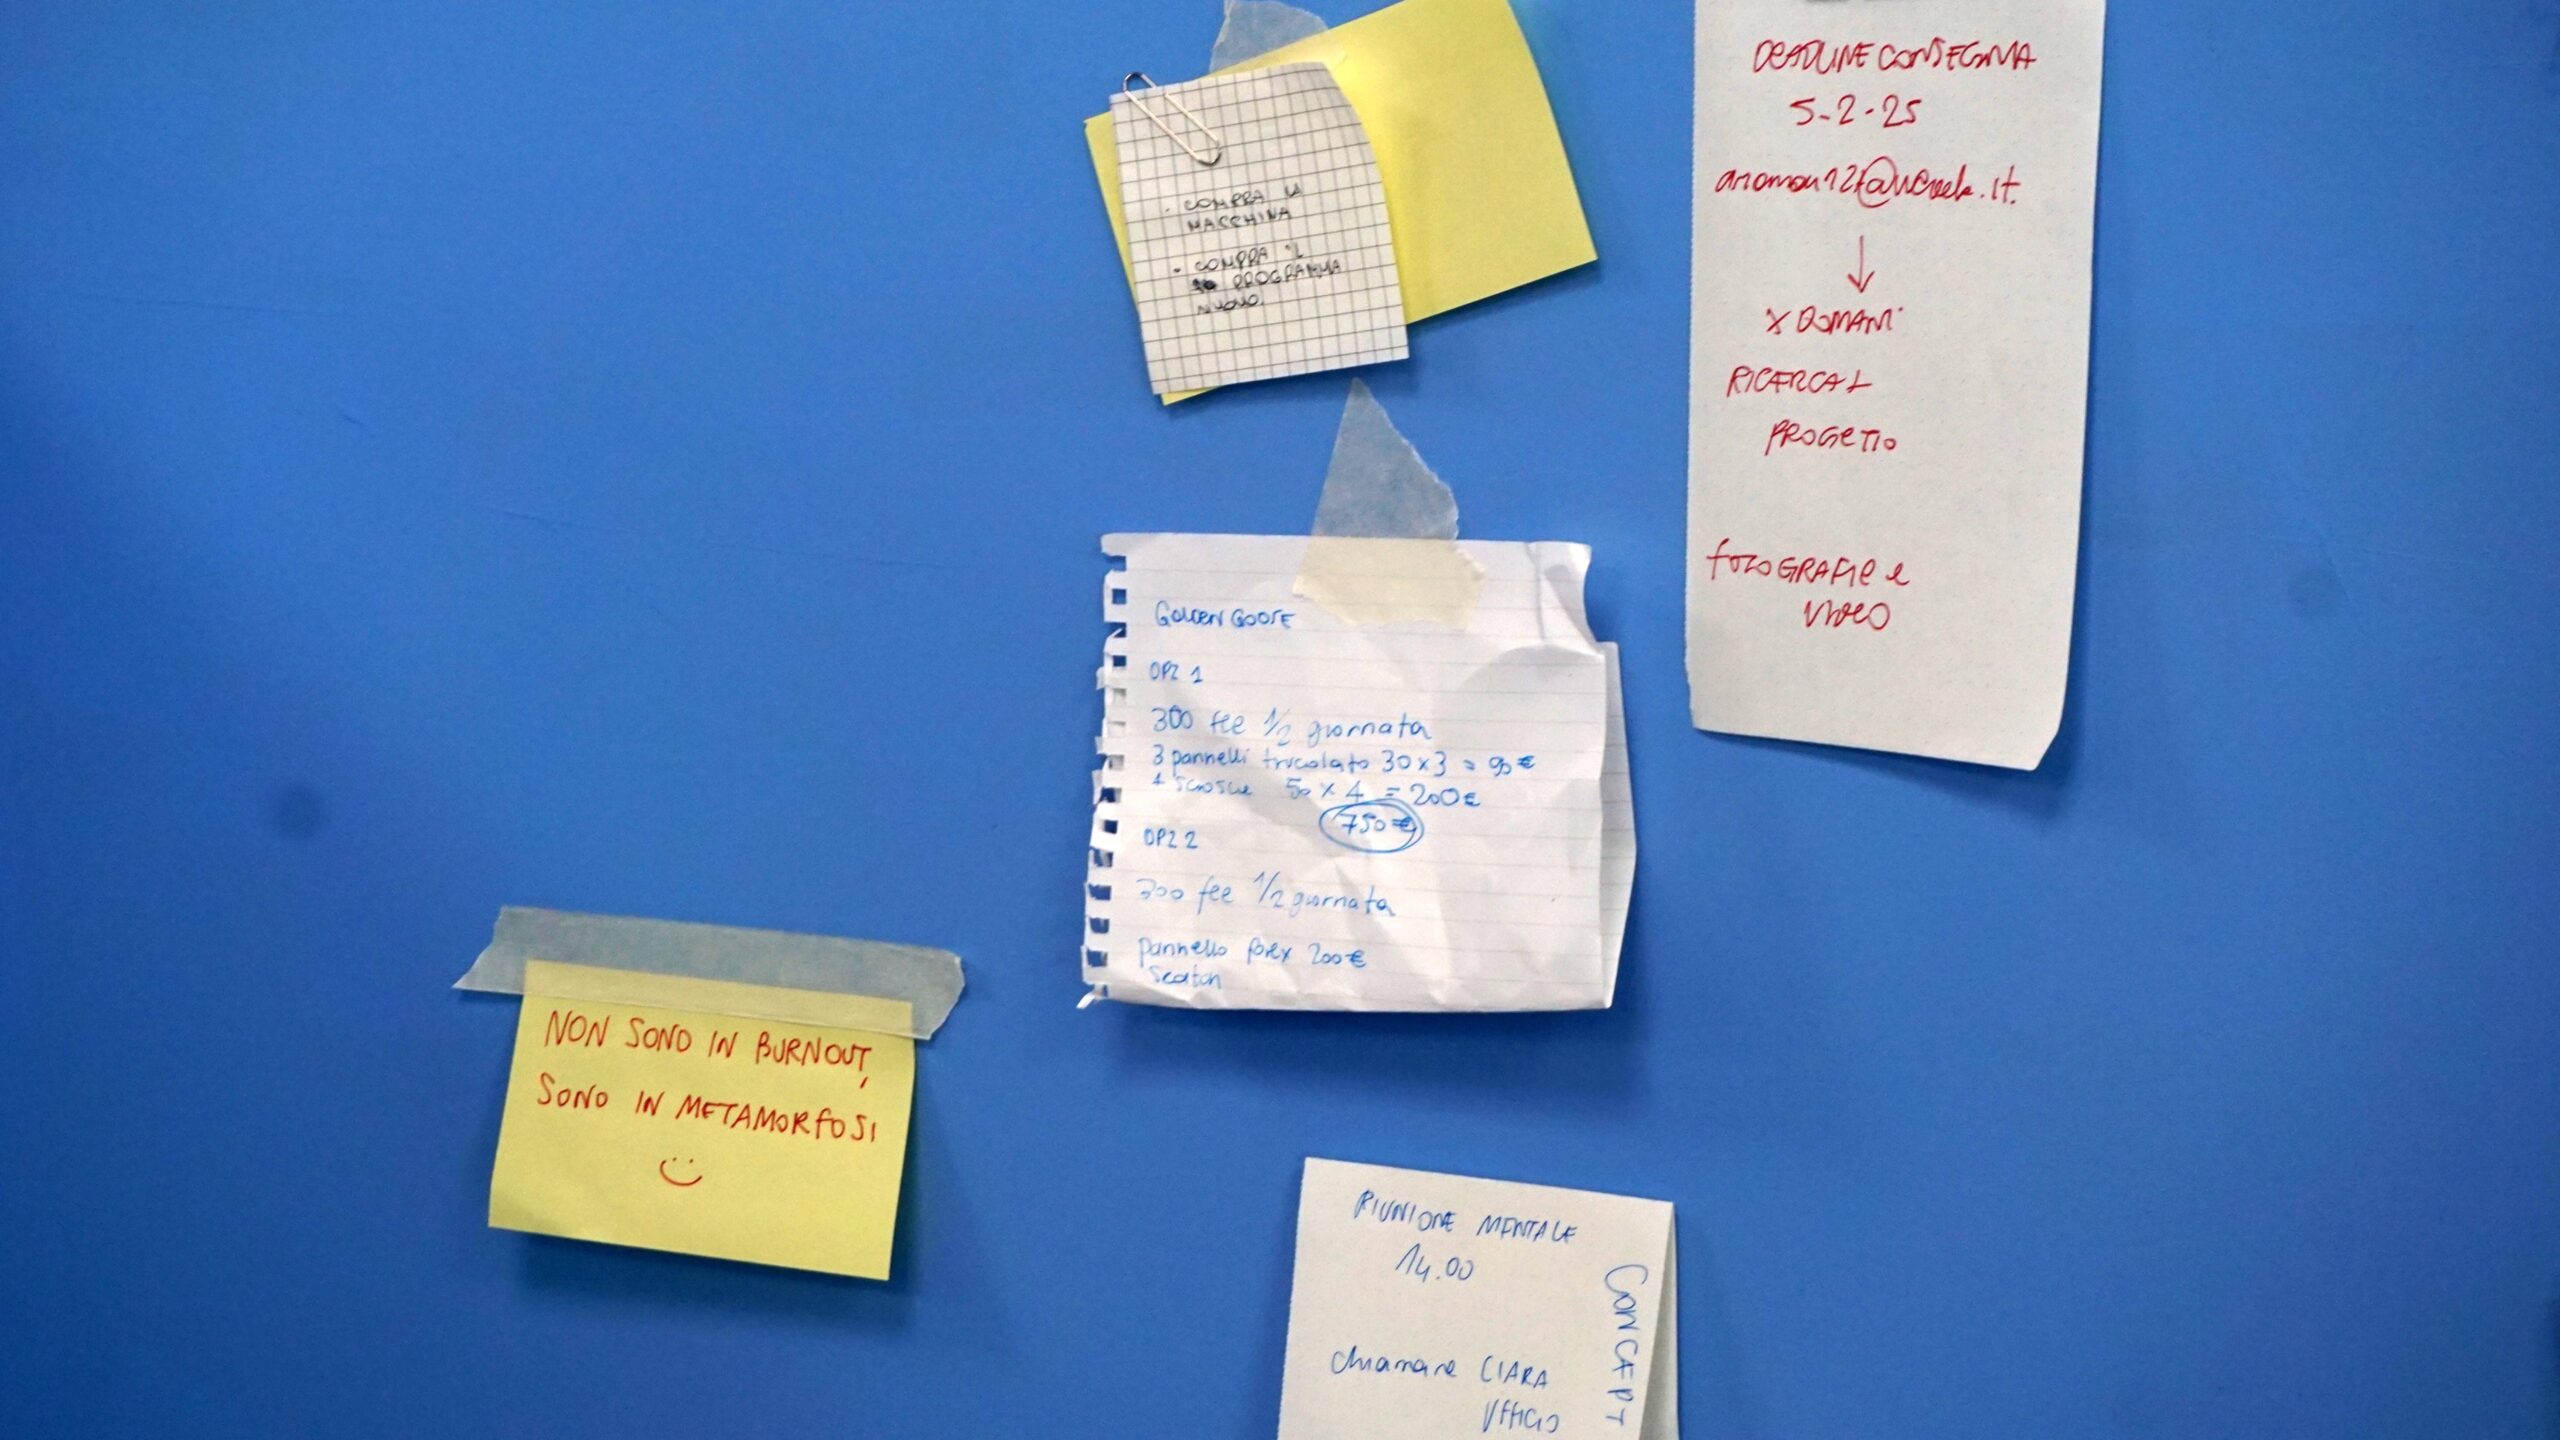 · COMPRA LA
MACCHINA
· COMPRA IL
PROGRAMMA
NUOVO.
DEADLINE CONSEGNA
5-2-25
↓
X DOMANI
RICERCA
PROGETTO
FOTOGRAFIE e
VIDEO
GOLDEN GOOSE
OPZ 1
300 fee 1/2 giornata
3 pannelli 30 x 3 = 90€
50 x 4 = 200€
750€
OPZ 2
300 fee 1/2 giornata
pannello forex 200€
NON SONO IN BURNOUT,
SONO IN METAMORFOSI
RIUNIONE MENTALE
14.00
chiamare CIARA
UFFICIO
CONCEPT